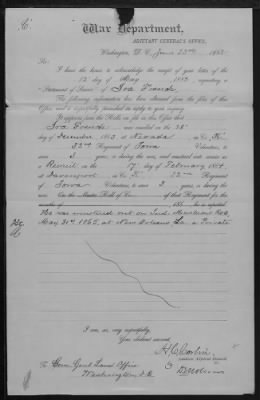 War Department,
ADJUTANT GENERAL'S OFFICE,
Washington, D. C., June 23rd, 188
I have the honor to acknowledge the receipt of your letter of the
12" day of May 188 , requesting a
"Statement of Service" of Ira French
The following information has been obtained from the files of this
Office and is respectfully furnished in reply to your inquiry.
It appears from the Rolls on file in this Office that
Ira French was enrolled on the 28"
day of December 1863 at Nevada in Co. K.
32nd Regiment of Iowa Volunteers, to
serve 3 years, or during the war, and mustered into service as
Recruit on the 17 day of February 1864,
at Davenport in Co. K, 32nd
Regiment of Iowa Volunteers, to serve 3 years, or during the
war. On the Muster Roll of Co. of that Regiment for the
months of 186 , he is reported
He was mustered out on Ind. Muster out Roll
May 31st 1865, at New Orleans La. a Private
I am, sir, very respectfully,
Your obedient servant,
Assistant Adjutant General.
To Com. Genl. Land Office
Washington D.C.